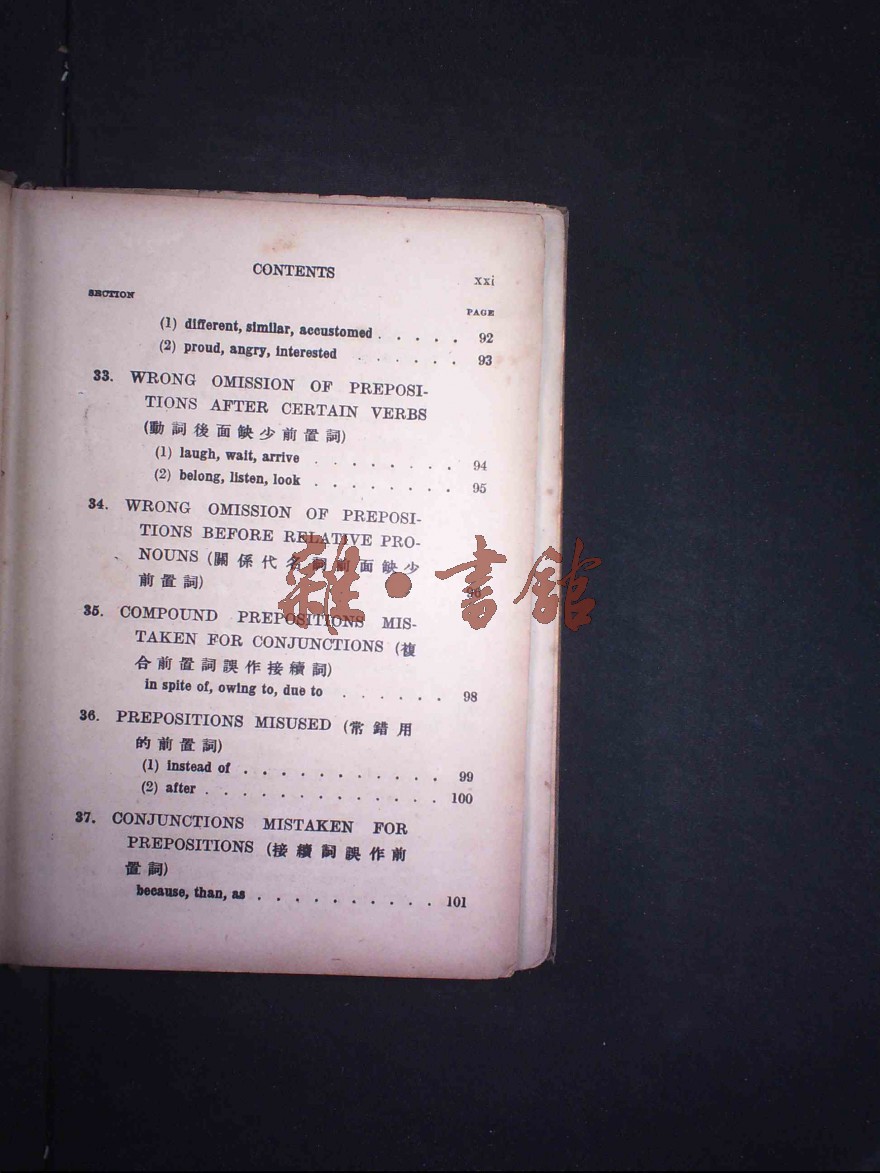 CONTENTS xxi
SECTION PAGE
(1) different, similar, accustomed . . . . . 92
(2) proud, angry, interested . . . . . . 93
33. WRONG OMISSION OF PREPOSI-
TIONS AFTER CERTAIN VERBS
(動詞後面缺少前置詞)
(1) laugh, wait, arrive . . . . . . . . 94
(2) belong, listen, look . . . . . . . . 95
34. WRONG OMISSION OF PREPOSI-
TIONS BEFORE RELATIVE PRO-
NOUNS (關係代名詞前面缺少
前置詞) 96
雜·書館
35. COMPOUND PREPOSITIONS MIS-
TAKEN FOR CONJUNCTIONS (複
合前置詞誤作接續詞)
in spite of, owing to, due to . . . . . . 98
36. PREPOSITIONS MISUSED (常錯用
的前置詞)
(1) instead of . . . . . . . . . . . 99
(2) after . . . . . . . . . . . . . 100
37. CONJUNCTIONS MISTAKEN FOR
PREPOSITIONS (接續詞誤作前
置詞)
because, than, as . . . . . . . . . . 101